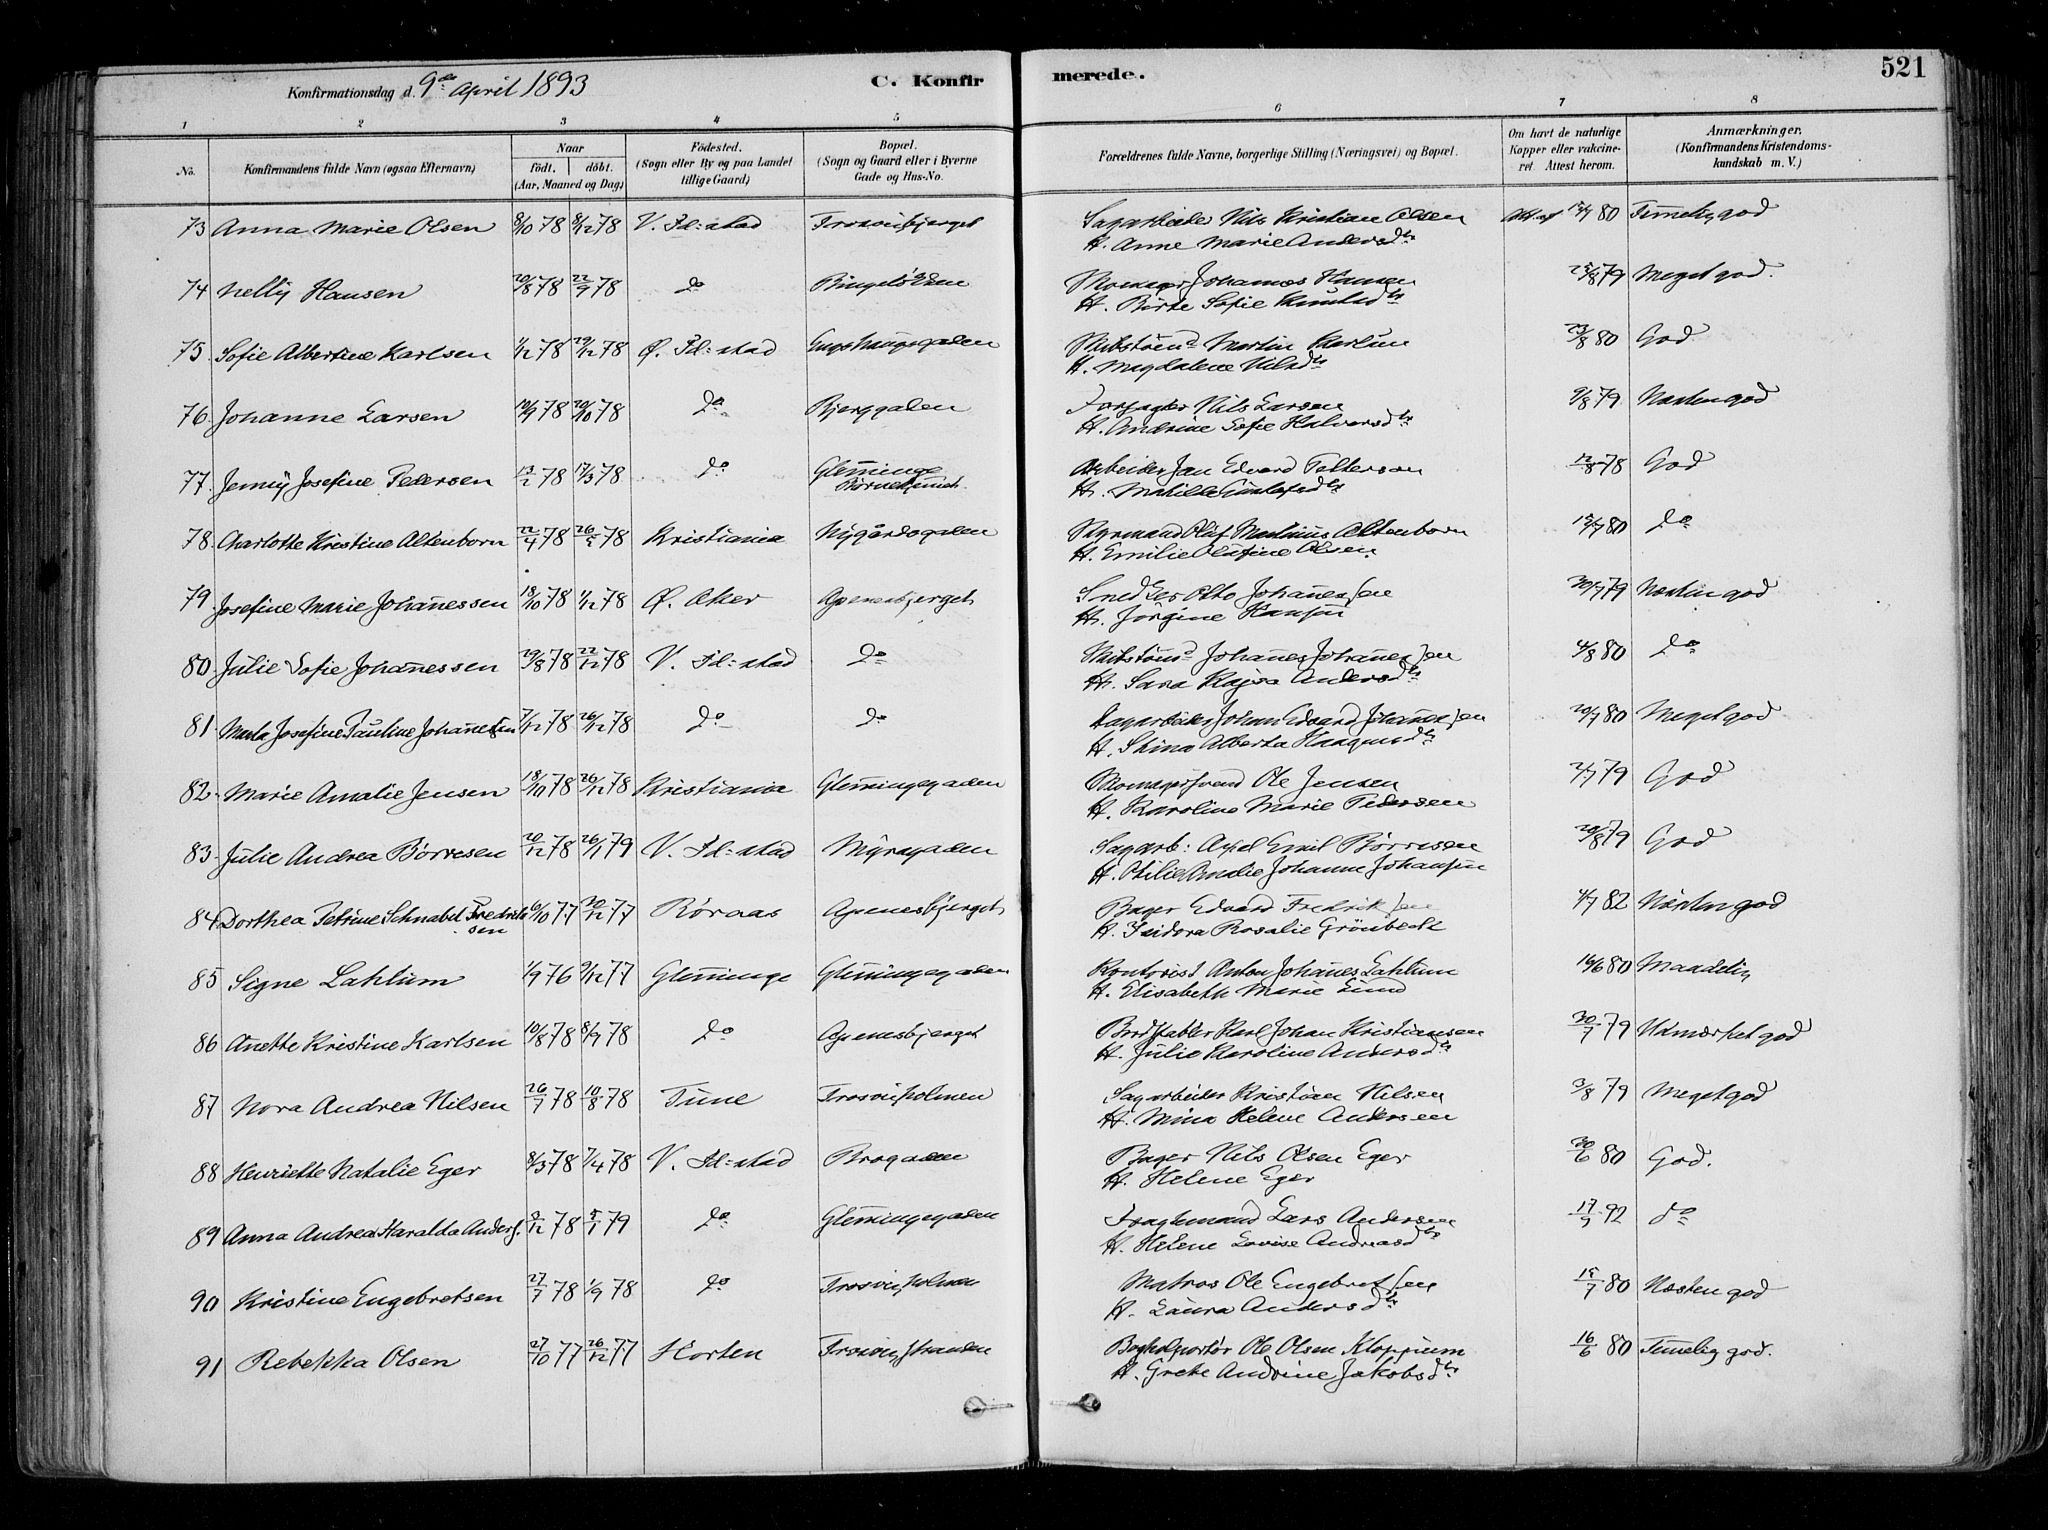 Konfirmationsdag d. 9de April 1893 C. Konfir merede. 521
1 2 3 4 5 6 7 8
No. Konfirmandens fulde Navn (ogsaa Efternavn) Naar født. døbt. (Aar, Maaned og Dag) Fødested. (Sogn eller By og paa Landet tillige Gaard) Bopæl. (Sogn og Gaard eller i Byerne Gade og Hus-No. Forældrenes fulde Navne, borgerlige Stilling (Næringsvei) og Bopæl. Om havt de naturlige Kopper eller vakcineret. Attest herom. Anmærkninger. (Konfirmandens Kristendomskundskab m. V.)
73 Anna Marie Olsen 8/10 78 8/12 78 V. Fd:stad Trosvikbjerget Sagarbeider Nils Kristian Olsen 80 Temmelig god
H. Anne Marie Andersdtr
74 Nelly Hansen 20/8 78 22/9 78 do Johannes Hansen 25/8 79 Meget god.
H. Birte Sofie Knudsdtr
75 Sofie Albertine Karlsen 1/12 78 29/12 78 Ø. Fd:stad Martin Karlsen 23/8 80 God
H. Magdalene Nilsdtr
76 Johanne Larsen 10/9 78 20/10 78 do Bjerggaden Nils Larsen 9/8 79 Næsten god
H. Andrine Sofie Halvorsdtr
77 Jenny Josefine Pedersen 13/2 78 17/3 78 do Glemminge Arbeider Jan Edvard Petterson 12/8 78 God
H. Matilde Gustafsdtr
78 Charlotte Kristine Altenborn 22/4 78 26/5 78 Kristiania Nygårdsgaden Styrmand Olaf Martinius Altenborn 15/7 80 do
H. Emilie Olufine Olsen
79 Josefine Marie Johannessen 18/10 78 1/12 78 Ø. Aker Apenesbjerget Snedker Otto Johannessen 30/7 79 Næsten god
H. Jörgine Hansen
80 Julie Sofie Johannessen 29/8 78 22/12 78 V. Fd:stad do Johannes Johannessen 4/8 80 do
H. Sara Kajsa Andersdtr
81 Marta Josefine Pauline Johannessen 7/12 78 26/12 78 do do Sagarbeider Johan Edvard Johannessen 20/7 80 Meget god
H. Stina Alberta Haagensdtr
82 Marie Amalie Jensen 18/10 78 26/12 78 Kristiania Glemmingegaden Ole Jensen 2/7 79 God
H. Karoline Marie Pedersen
83 Julie Andrea Börresen 20/12 78 26/1 79 V. Fd:stad Myragaden Sagarb: Axel Emil Börresen 20/8 79 God
H. Otilie Amalie Johanne Johansen
84 Dorthea Petrine Schnabel Fredriksen 6/10 77 30/12 77 Röraas Apenesbjerget Bager Edvard Fredriksen 4/7 82 Næsten god
H. Isidora Rosalie Grönbeck
85 Signe Lahlum 1/9 76 9/12 77 Glemminge Glemmingegaden Kontorist Anton Johannes Lahlum 16/6 80 Maadelig
H. Elisabeth Marie Lund
86 Anette Kristine Karlsen 10/8 78 8/9 78 do Apenesbjerget Bordstabler Karl Johan Kristiansen 30/7 79 Udmærket god
H. Julie Karoline Andersdtr
87 Nora Andrea Nilsen 26/7 78 10/8 78 Tune Trosvikholmen Sagarbeider Kristian Nilsen 3/8 79 Meget god
H. Mina Helene Andersen
88 Henriette Natalie Eger 8/3 78 7/4 78 V. Fd:stad Brogaden Bager Nils Olsen Eger 30/6 80 God.
H. Helene Eger
89 Anna Andrea Haralda Anders. 8/12 78 5/1 79 do Glemmingegaden Fragtemand Lars Andersen 17/9 92 do
H. Helene Lovise Andreasdtr
90 Kristine Engebretsen 27/7 78 1/9 78 do Trosvikholmen Matros Ole Engebretsen 15/7 80 Næsten god
H. Laura Andersdtr
91 Rebekka Olsen 27/10 77 26/12 77 Horten Trosvikstranden Ole Olsen Kloppium 16/6 80 Temmelig god.
H. Grete Andrine Jakobsdtr